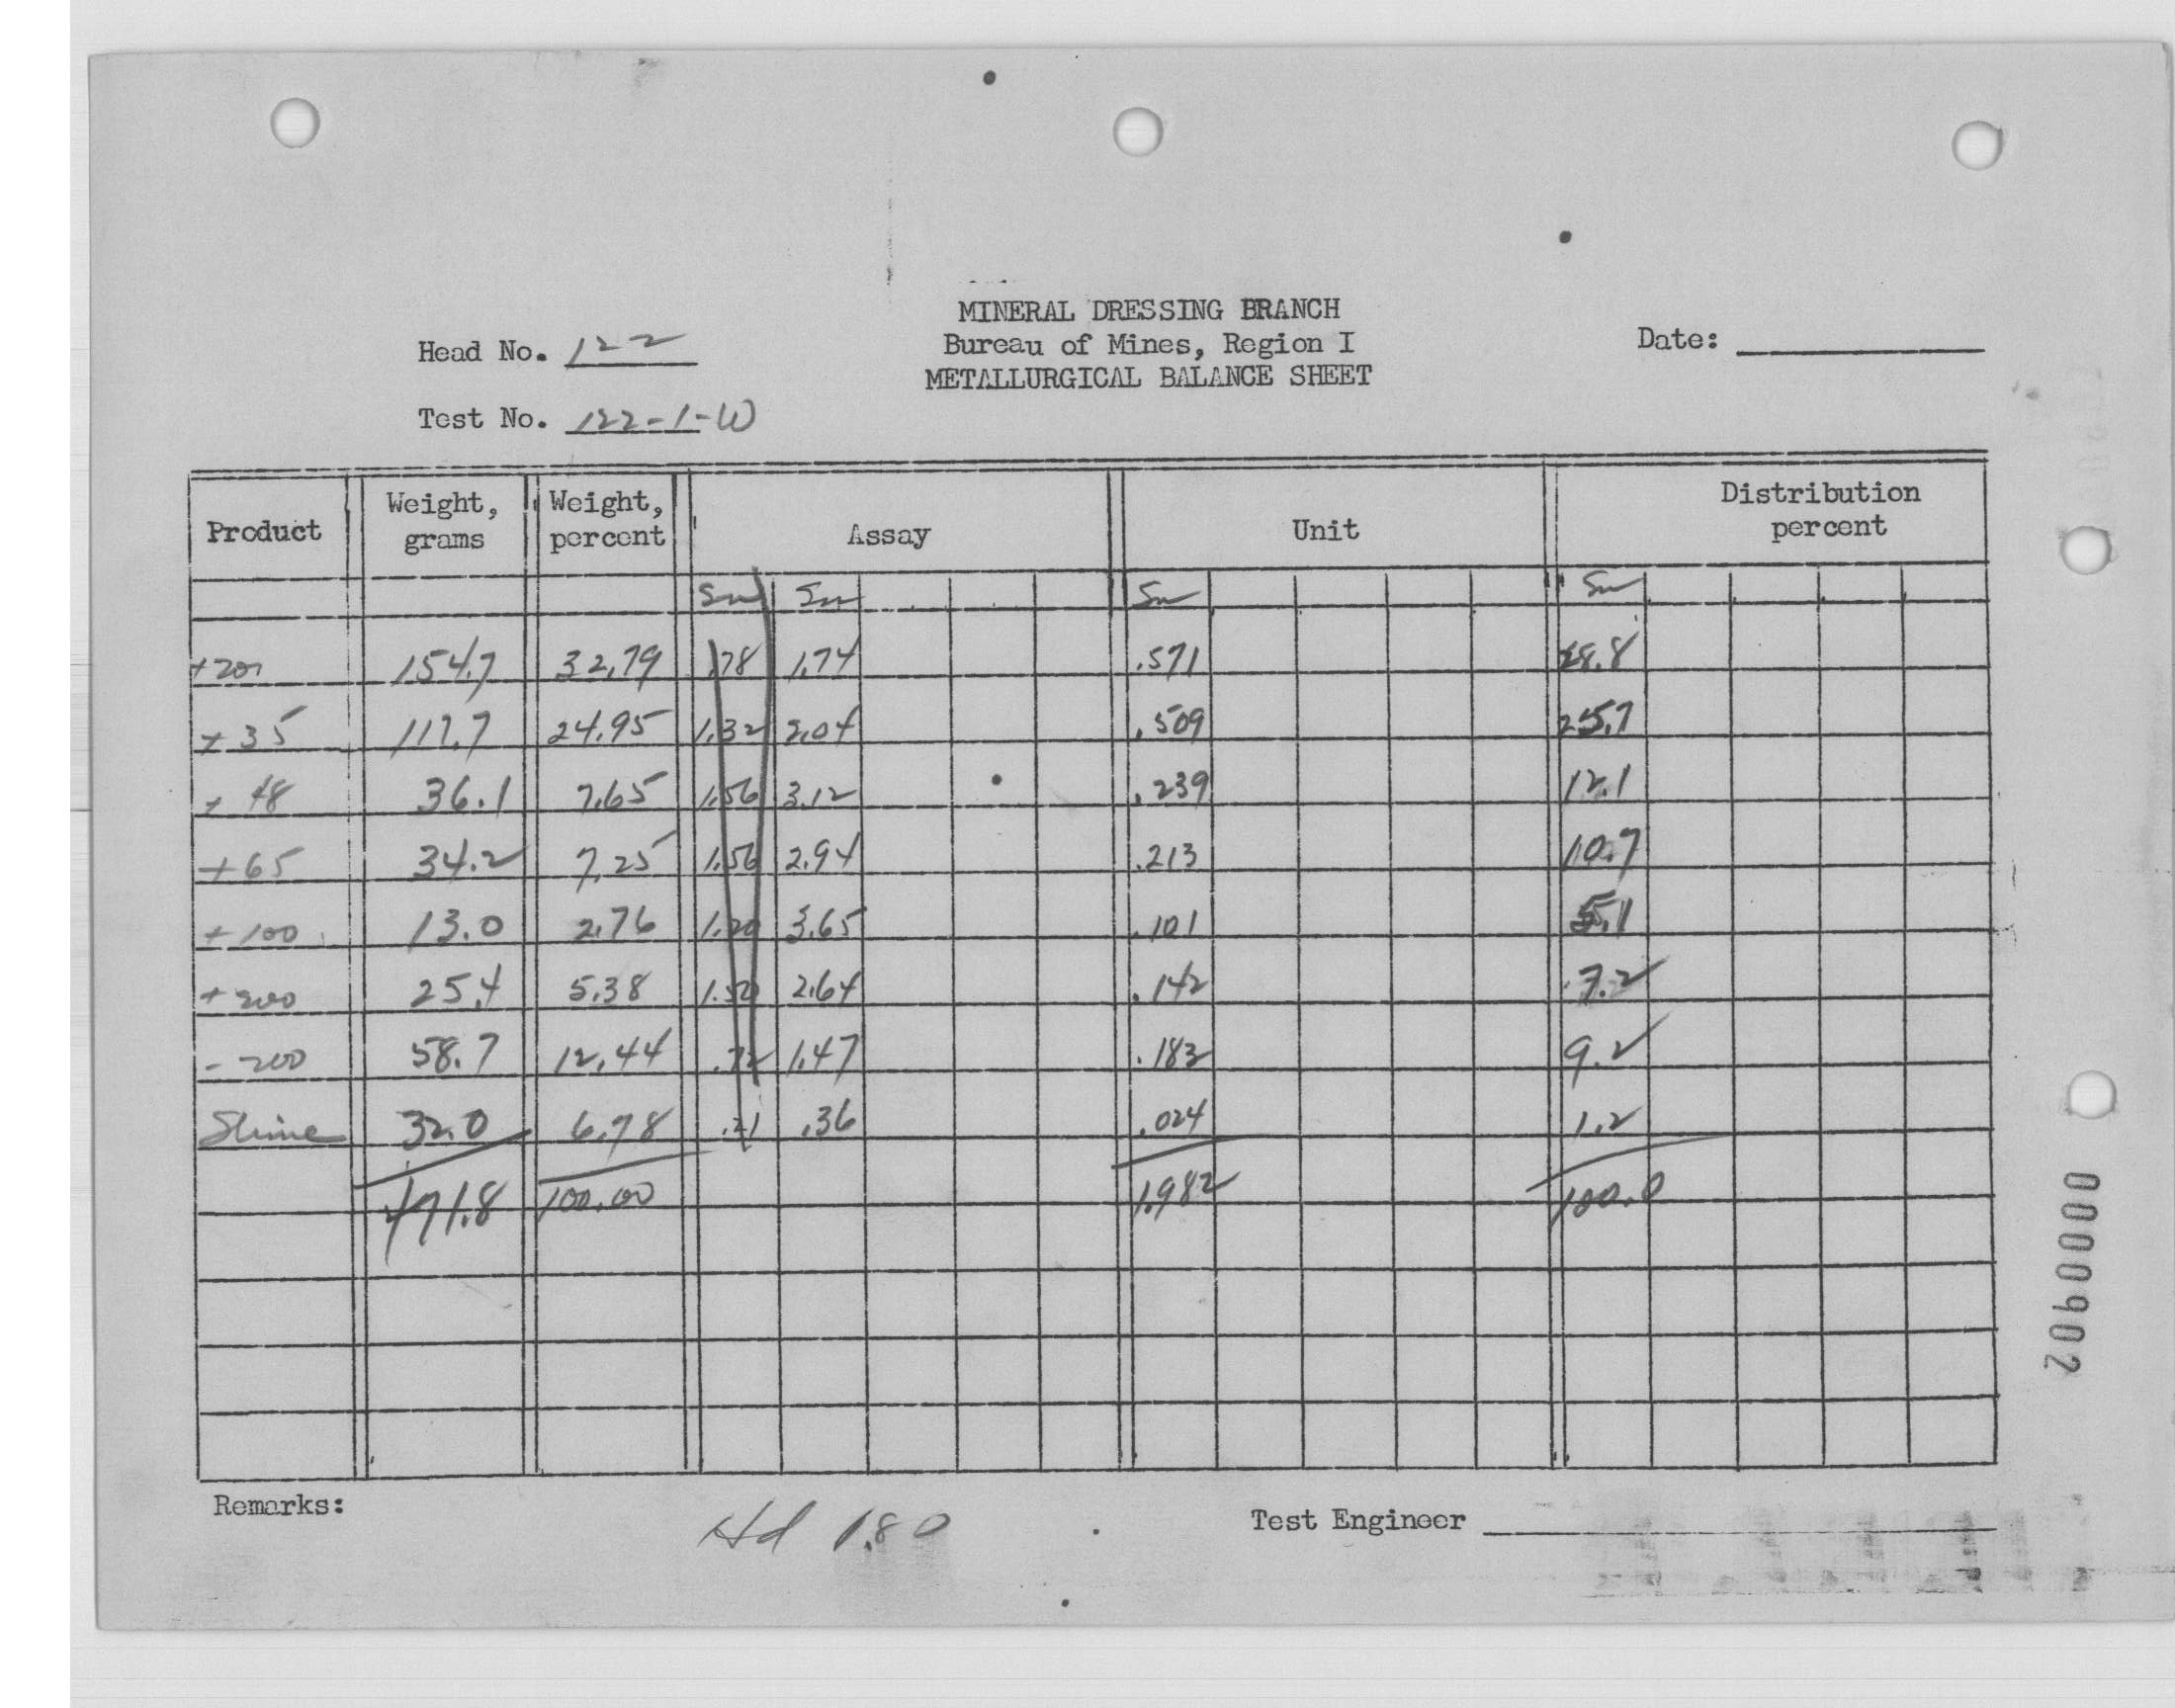 MINERAL DRESSING BRANCH
Head No. 122 Bureau of Mines, Region I Date:
METALLURGICAL BALANCE SHEET
Test No. 122-1-W
Product Weight, grams Weight, percent Assay Unit Distribution percent
Sn Sn Sn Sn
+20 154.7 32.79 1.74 .571 28.8
+35 117.7 24.95 1.32 2.04 .509 25.7
+48 36.1 7.65 1.56 3.12 .239 12.1
+65 34.2 7.25 1.56 2.94 .213 10.7
+100 13.0 2.76 1.20 3.65 .101 5.1
+200 25.4 5.38 1.50 2.64 .142 7.2
-200 58.7 12.44 .72 1.47 .183 9.2
Slime 32.0 6.78 .21 .36 .024 1.2
471.8 100.00 1.982 100.0
Remarks: Hd 1.80 Test Engineer
0000902